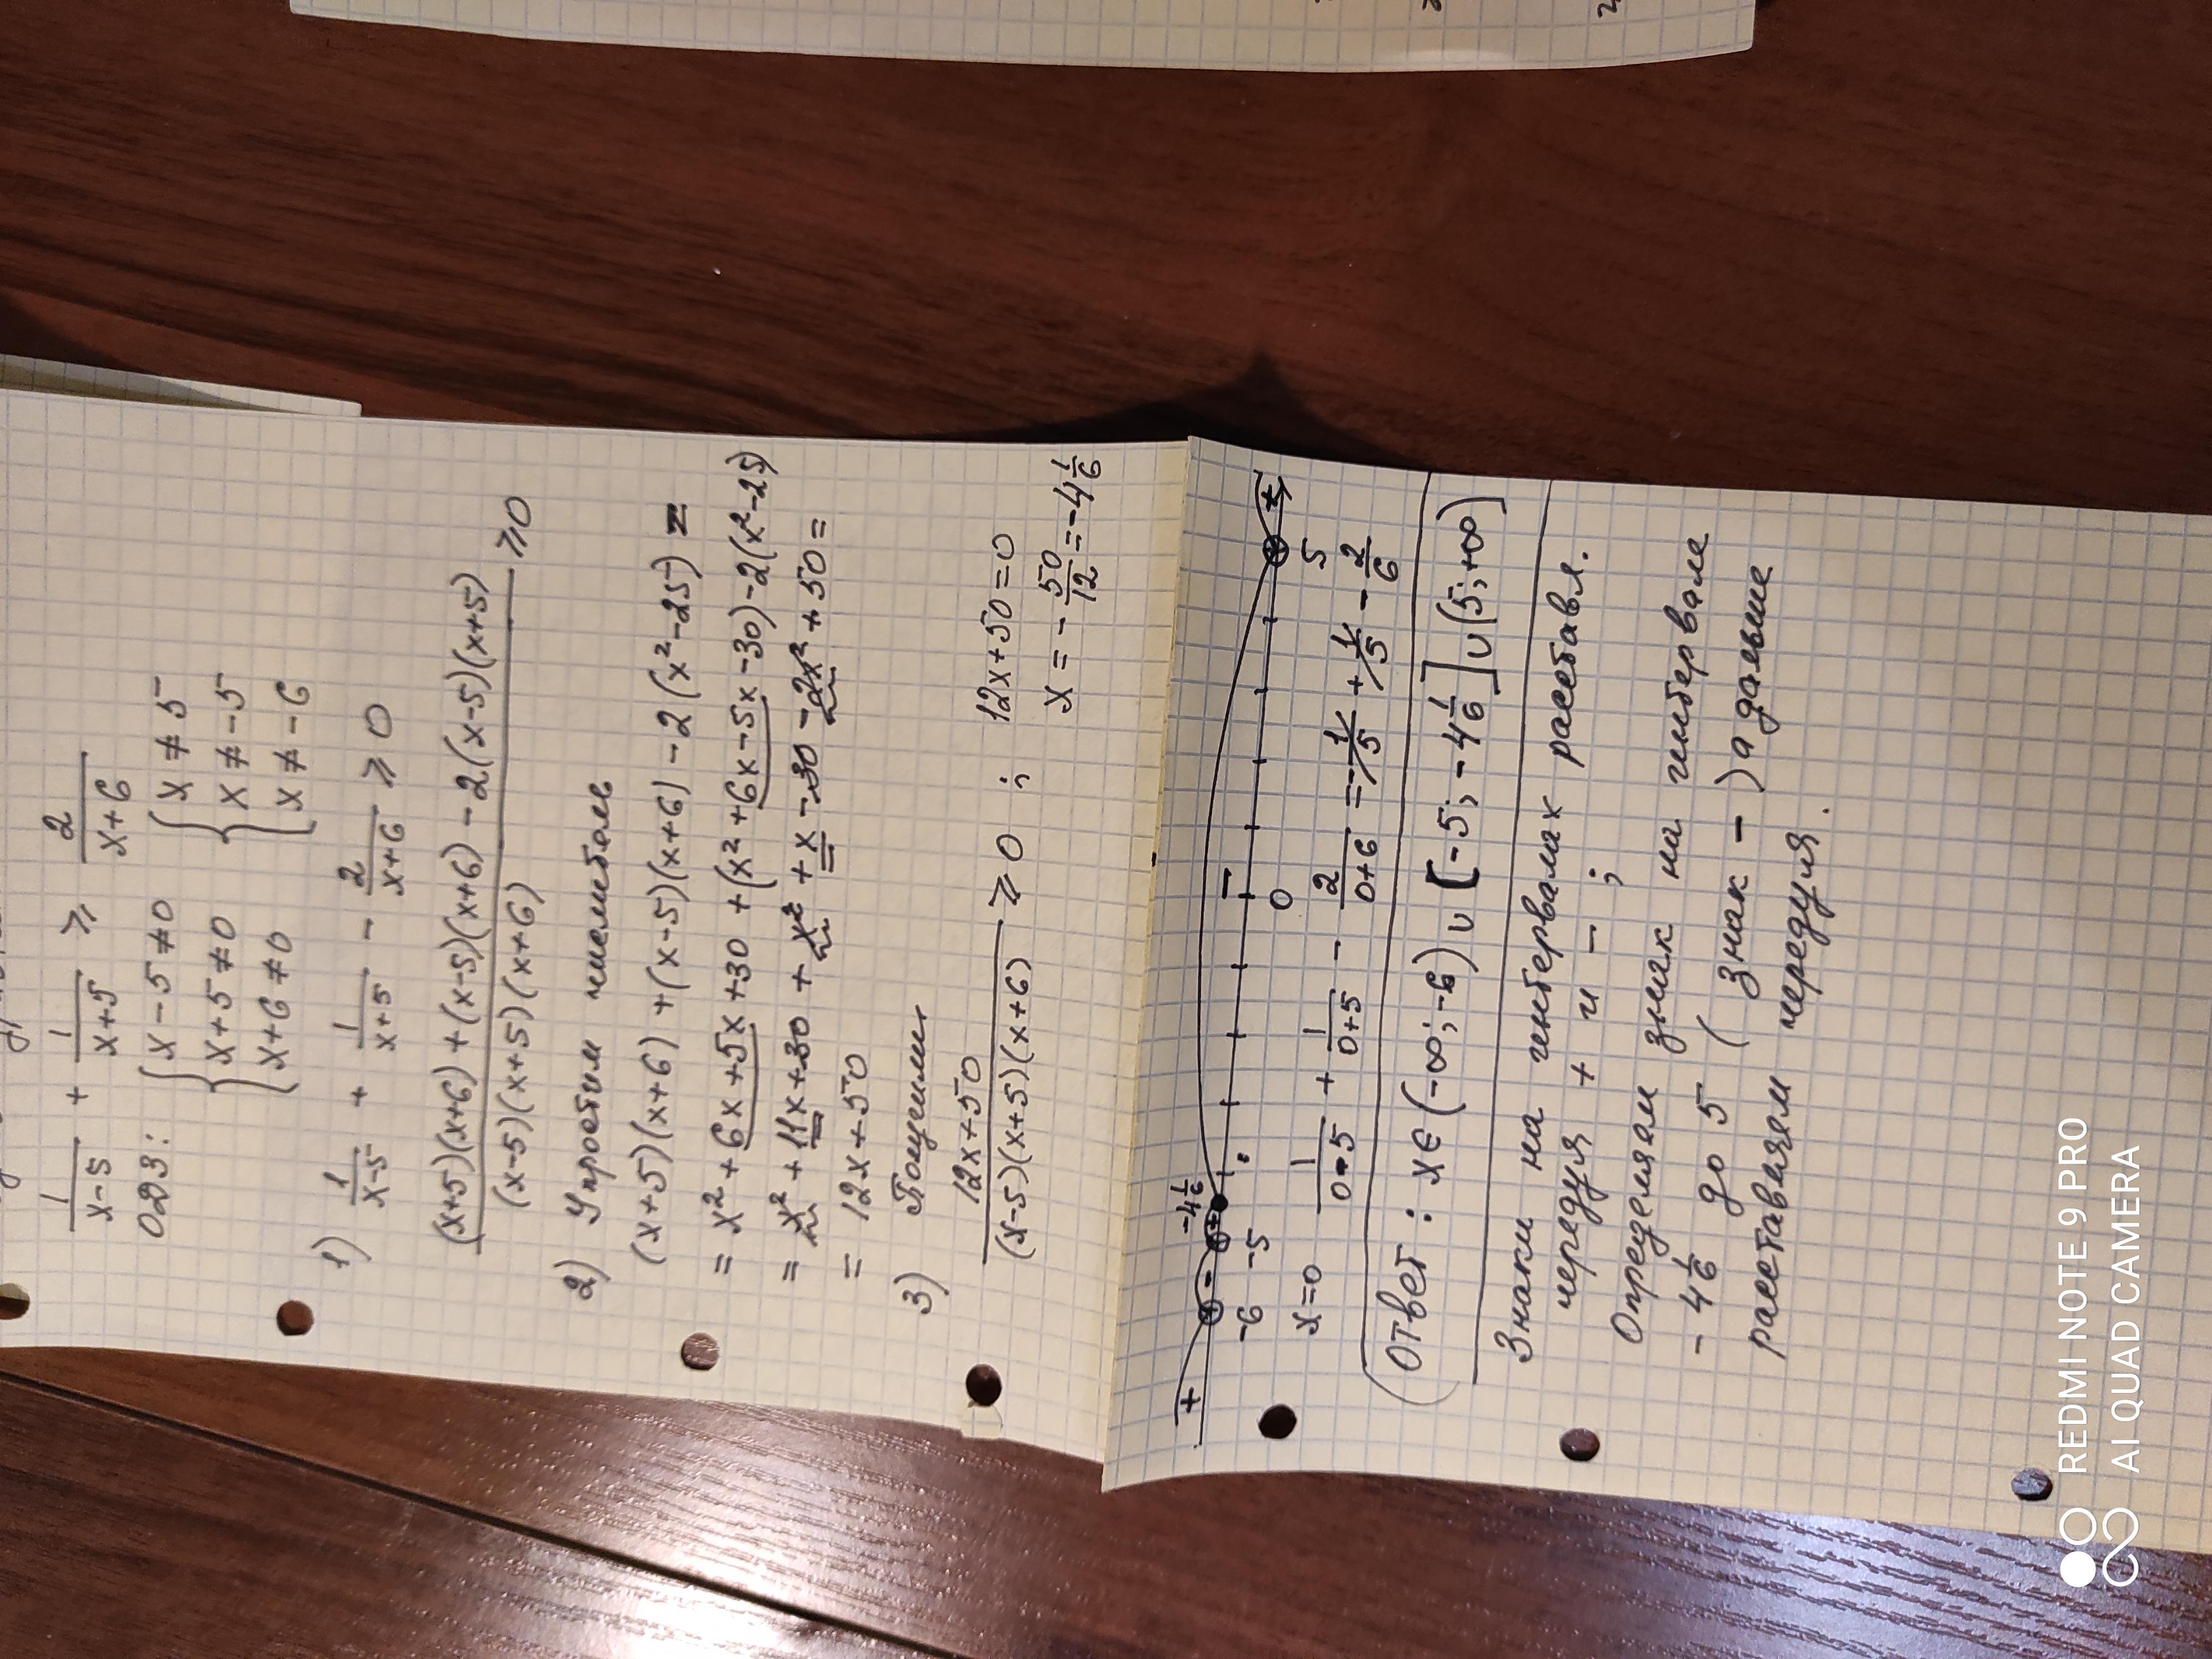 1/(x-5) + 1/(x+5) ⩾ 2/(x+6)
ОДЗ: { x-5≠0 { x≠5
{ x+5≠0 { x≠-5
{ x+6≠0 { x≠-6
1) 1/(x-5) + 1/(x+5) - 2/(x+6) ⩾ 0
((x+5)(x+6)+(x-5)(x+6)-2(x-5)(x+5))/((x-5)(x+5)(x+6)) ⩾0
2) Упростим числитель
(x+5)(x+6)+(x-5)(x+6)-2(x²-25)=
=x²+6x+5x+30+(x²+6x-5x-30)-2(x²-25)
=x²+11x+30+x²+x-30-2x²+50=
=12x+50
3) Получили
(12x+50)/((x-5)(x+5)(x+6)) ⩾ 0 ; 12x+50=0
x=-50/12=-4 1/6
-4 1/6
+ - + - +
-6 -5 0 5
x=0 1/(0-5) + 1/(0+5) - 2/(0+6) = -1/5 + 1/5 - 2/6
Ответ: x∈(-∞;-6)∪[-5;-4 1/6]∪(5;+∞)
Знаки на интервалах расставл.
чередуя + и - ;
Определяем знак на интервале
-4 1/6 до 5 ( знак - ) а дальше
расставляем чередуя.
REDMI NOTE 9 PRO
AI QUAD CAMERA